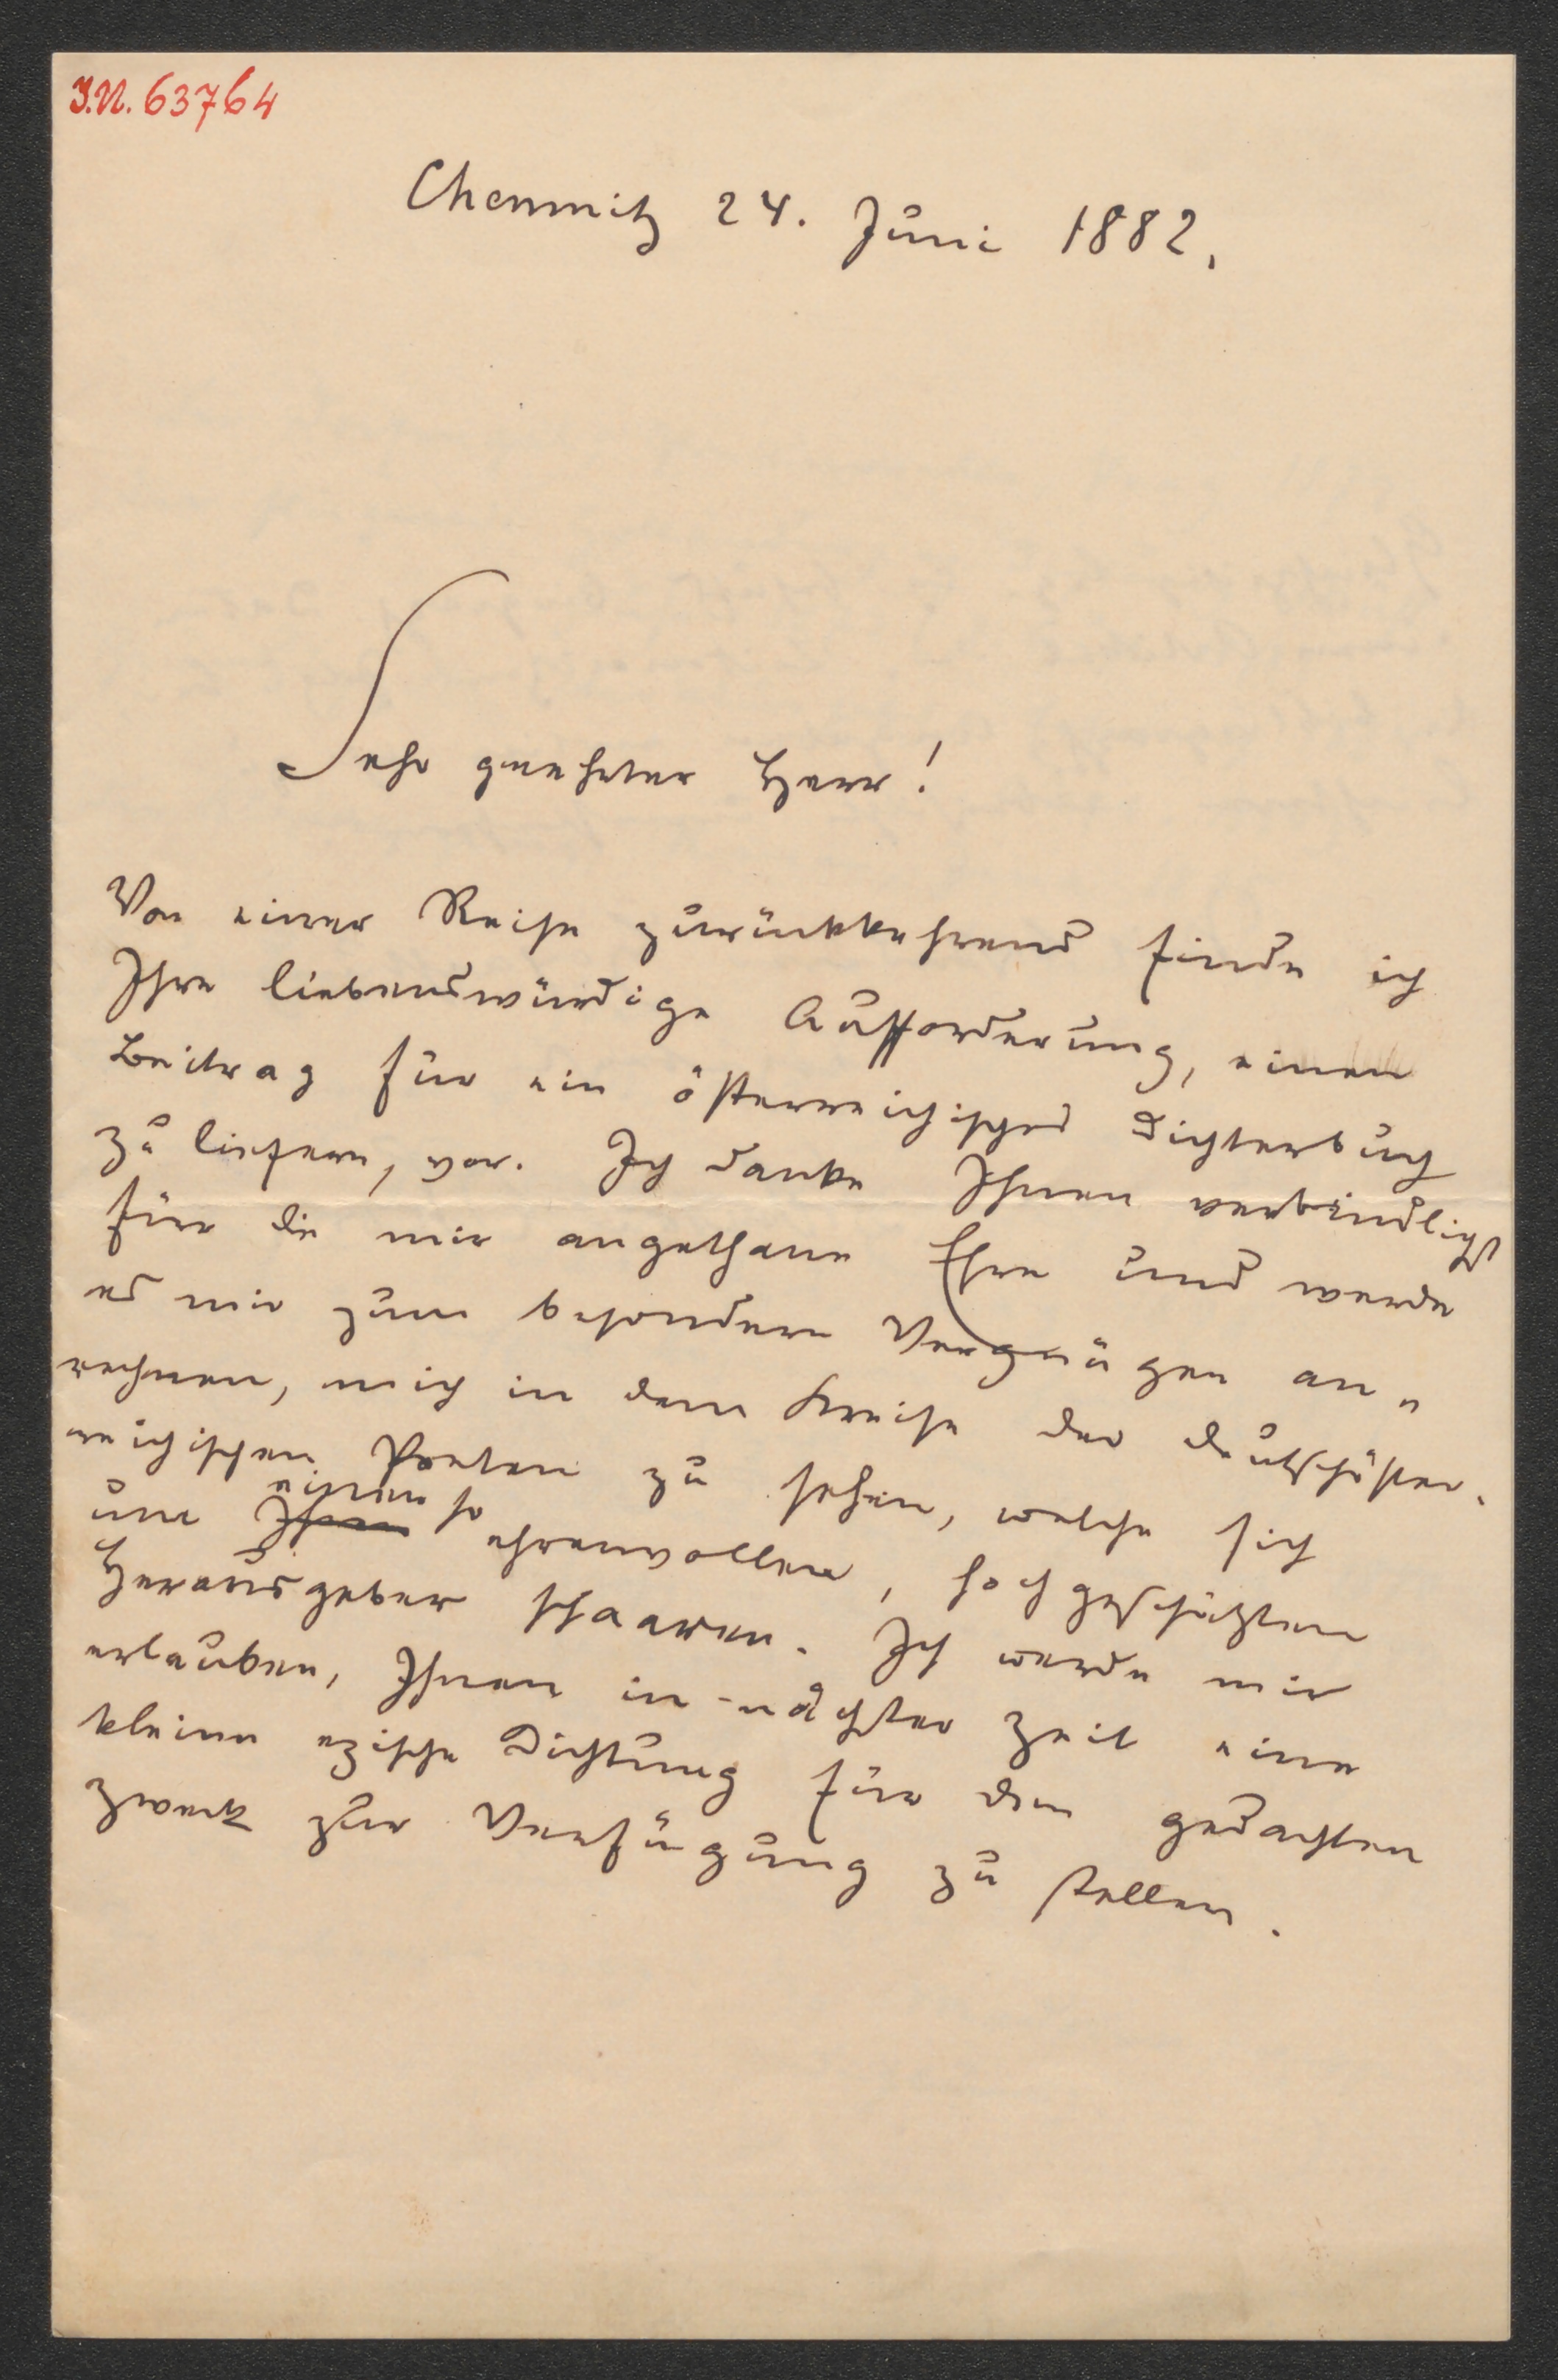 I.N. 63764
Chemnitz 24. Juni 1882.
Sehr geehrter Herr!
Von einer Reise zurückkehrend finde ich
Ihre liebenswürdige Aufforderung, einen
Beitrag für ein österreichisches Dichterbuch
zu liefern, vor. Ich danke Ihnen verbindlichst
für die mir angethane Ehre und werde
es mir zum besondern Vergnügen an„
rechnen, mich in dem Kreise der deutschöster.
reichischen Poeten zu sehen, welche sich
um Ihren einen so ehrenvollen, hochgeschätzten
Herausgeber schaaren. Ich werde mir
erlauben, Ihnen in nächster Zeit eine
kleine epische Dichtung für den gedachten
Zweck zur Verfügung zu stellen.